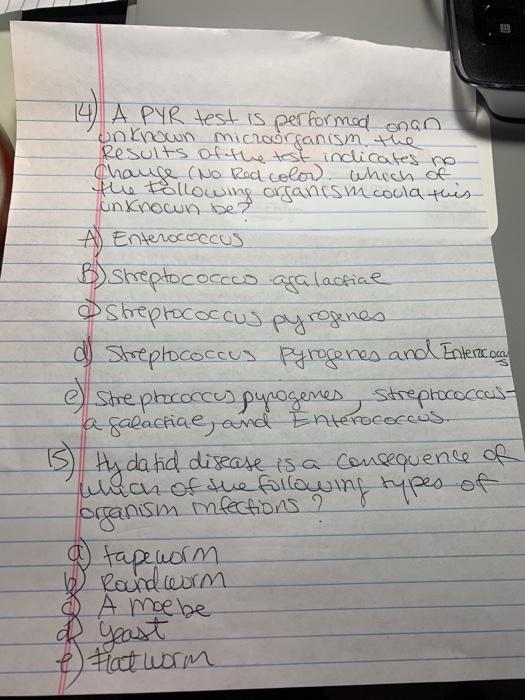 14) A PYR test is performed on an
unknown microorganism. the
Results of the test indicates no
Change (No Red color). which of
the following organism could this
unknown be?
A) Enterococcus
B) Streptococcus agalactiae
c) Streptococcus pyrogenes
d) Streptococcus Pyrogenes and Enterococcus
e) Streptococcus pyrogenes, Streptococcus-
agalactiae, and Enterococcus.
15) Hydatid disease is a consequence of
which of the following types of
organism infections?
a) tapeworm
b) Roundworm
c) Amoebe
d) yeast
e) Flatworm